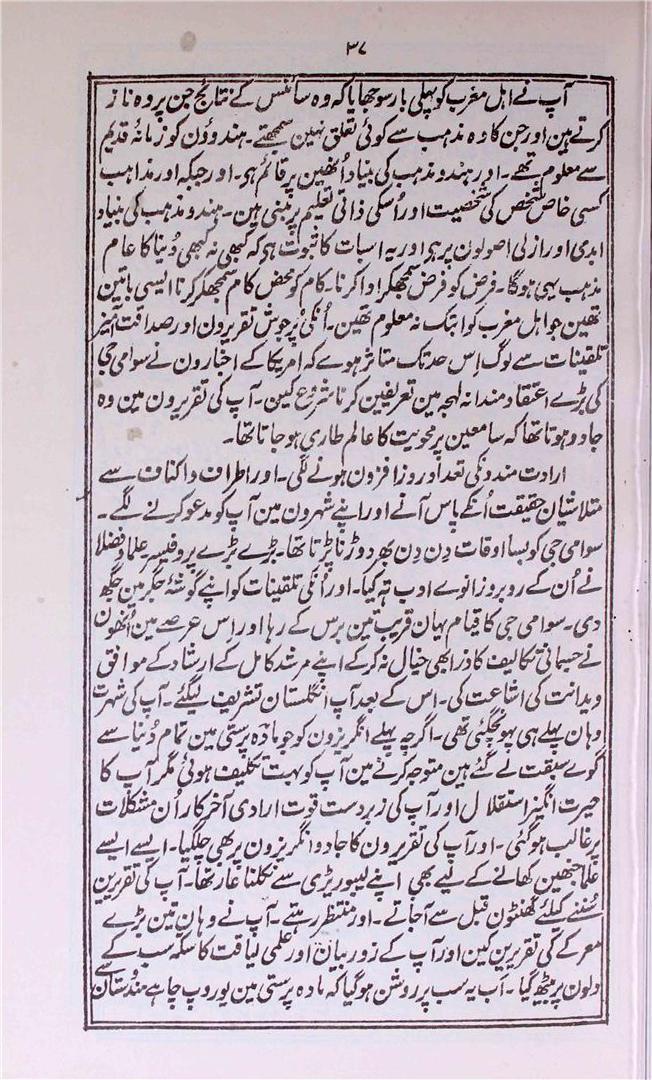 ۳۷
آپ نے اہل مغرب کو پہلی بار سوجھایا کہ وہ سائنس کے نتائج جن پر وہ ناز
کرتے ہین اور جن کا وہ مذہب سے کوئی تعلق نہین سمجھتے۔ ہندوؤن کو زمانۂ قدیم
سے معلوم تھے۔ اور ہندو مذہب کی بنیاد اُنھین پر قائم ہی۔ اور جبکہ اور مذاہب
کسی خاص شخص کی شخصیت اور اُسکی ذاتی تعلیم پر مبنی ہین۔ ہندو مذہب کی بنیاد
ابدی اور ازلی اصولون پر ہی اور یہ اسبات کا ثبوت ہی کہ کبھی نہ کبھی دُنیا کا عام
مذہب یہی ہوگا۔ فرض کو فرض سمجھکر ادا کرنا۔ کام کو محض کام سمجھکر کرنا ایسی باتین
تھین جو اہل مغرب کو ابتک نہ معلوم تھین۔ اُنکی پُرجوش تقریرون اور صداقت آمیز
تلقینات سے لوگ اِس حد تک متاثر ہوے کہ امریکا کے اخبارون نے سوامی جی
کی بڑے اعتقادمندانہ لہجہ مین تعریفین کرنا شروع کین۔ آپ کی تقریرون مین وہ
جادو ہوتا تھا کہ سامعین پر محویت کا عالم طاری ہو جاتا تھا۔
ارادت مندونکی تعداد روز افزون ہونے لگی۔ اور اطراف و اکناف سے
متلاشیان حقیقت اُنکے پاس آنے اور اپنے شہرون مین آپ کو مدعو کرنے لگے۔
سوامی جی کو بسا اوقات دِن دِن بھر دوڑنا پڑتا تھا۔ بڑے بڑے پروفیسر علما و فضلا
نے اُن کے روبرو زانوے ادب تہ کیا۔ اور اُنکی تلقینات کو اپنے گوشۂ جگر مین جگہ
دی۔ سوامی جی کا قیام یہان قریب تین برس کے رہا اور اِس عرصے مین اُنھون
نے جسمانی تکالیف کا ذرا بھی خیال نہ کرکے اپنے مرشد کامل کے ارشاد کے موافق
ویدانت کی اشاعت کی۔ اس کے بعد آپ انگلستان تشریف لیگئے۔ آپ کی شہرت
وہان پہلے ہی پہونچگئی تھی۔ اگرچہ پہلے انگریزون کو جو مادہ پرستی مین تمام دُنیا سے
گوے سبقت لے گئے ہین متوجہ کرنے مین آپ کو بہت تکلیف ہوئی مگر آپ کا
حیرت انگیز استقلال اور آپ کی زبردست قوت ارادی آخرکار اُن مشکلات
پر غالب ہوگئی۔ اور آپ کی تقریرون کا جادو انگریزون پر بھی چلگیا۔ ایسے ایسے
علما جنھین کھانے کے لیے بھی اپنے لیبوریٹری سے نکلنا عار تھا۔ آپ کی تقریرین
سُننے کیلئے گھنٹون قبل سے آجاتے۔ اور منتظر رہتے۔ آپ نے وہان تین بڑے
معرکے کی تقریرین کین اور آپ کے زور بیان اور علمی لیاقت کا سکہ سب کے
دلون پر بیٹھ گیا۔ اب یہ سب پر روشن ہوگیا کہ مادہ پرستی مین یوروپ چاہے ہندُستان سے